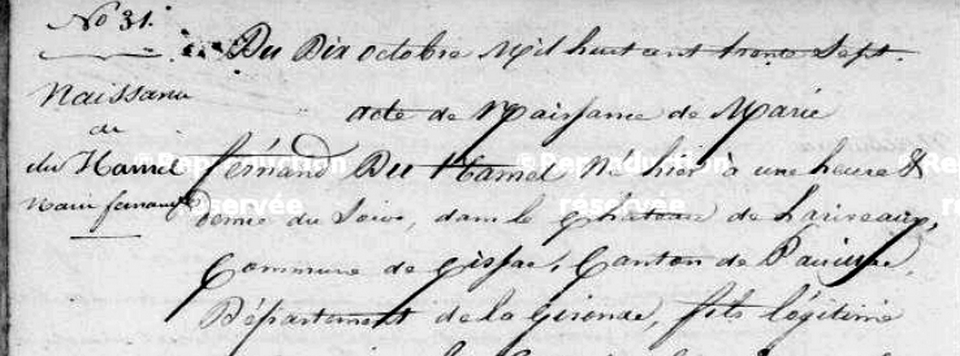 No 31.
Du Dix octobre Mil huit cent trente Sept.
Naissance
de
du Hamel
Marie fernand
acte de Naissance de Marie
fernand Du Hamel Né hier à une heure &
demie du Soir, dans le Château de
Commune de Cissac, Canton de Pauillac,
Département de la Gironde, fils légitime
© Reproduction
réservée
© Reproduction
réservée